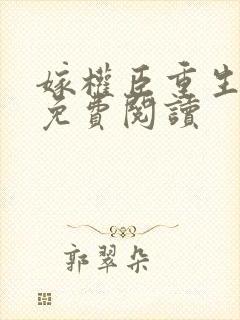 嫁權臣重生
免費閱讀
郭翠朵